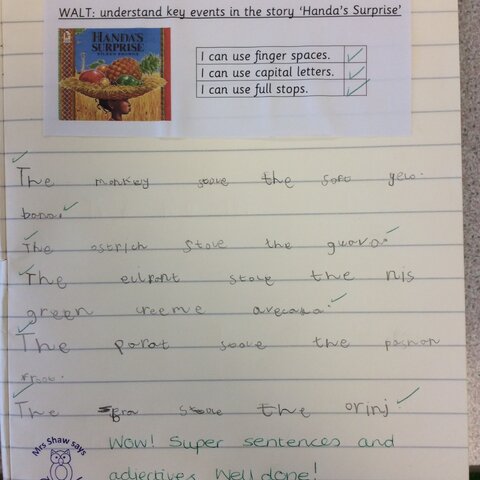 WALT: understand key events in the story 'Handa's Surprise'
HANDA'S
SURPRISE
EILEEN BROWNE
I can use finger spaces.
I can use capital letters.
I can use full stops.
The monkey the soft yelo.
bona.
The ostrich stole the guava.
The elpont stole the nis
green creeme avecado.
The parot the
froot.
The the orinj.
Wow! Super sentences and
adjectives. Well done!
Mrs Shaw says